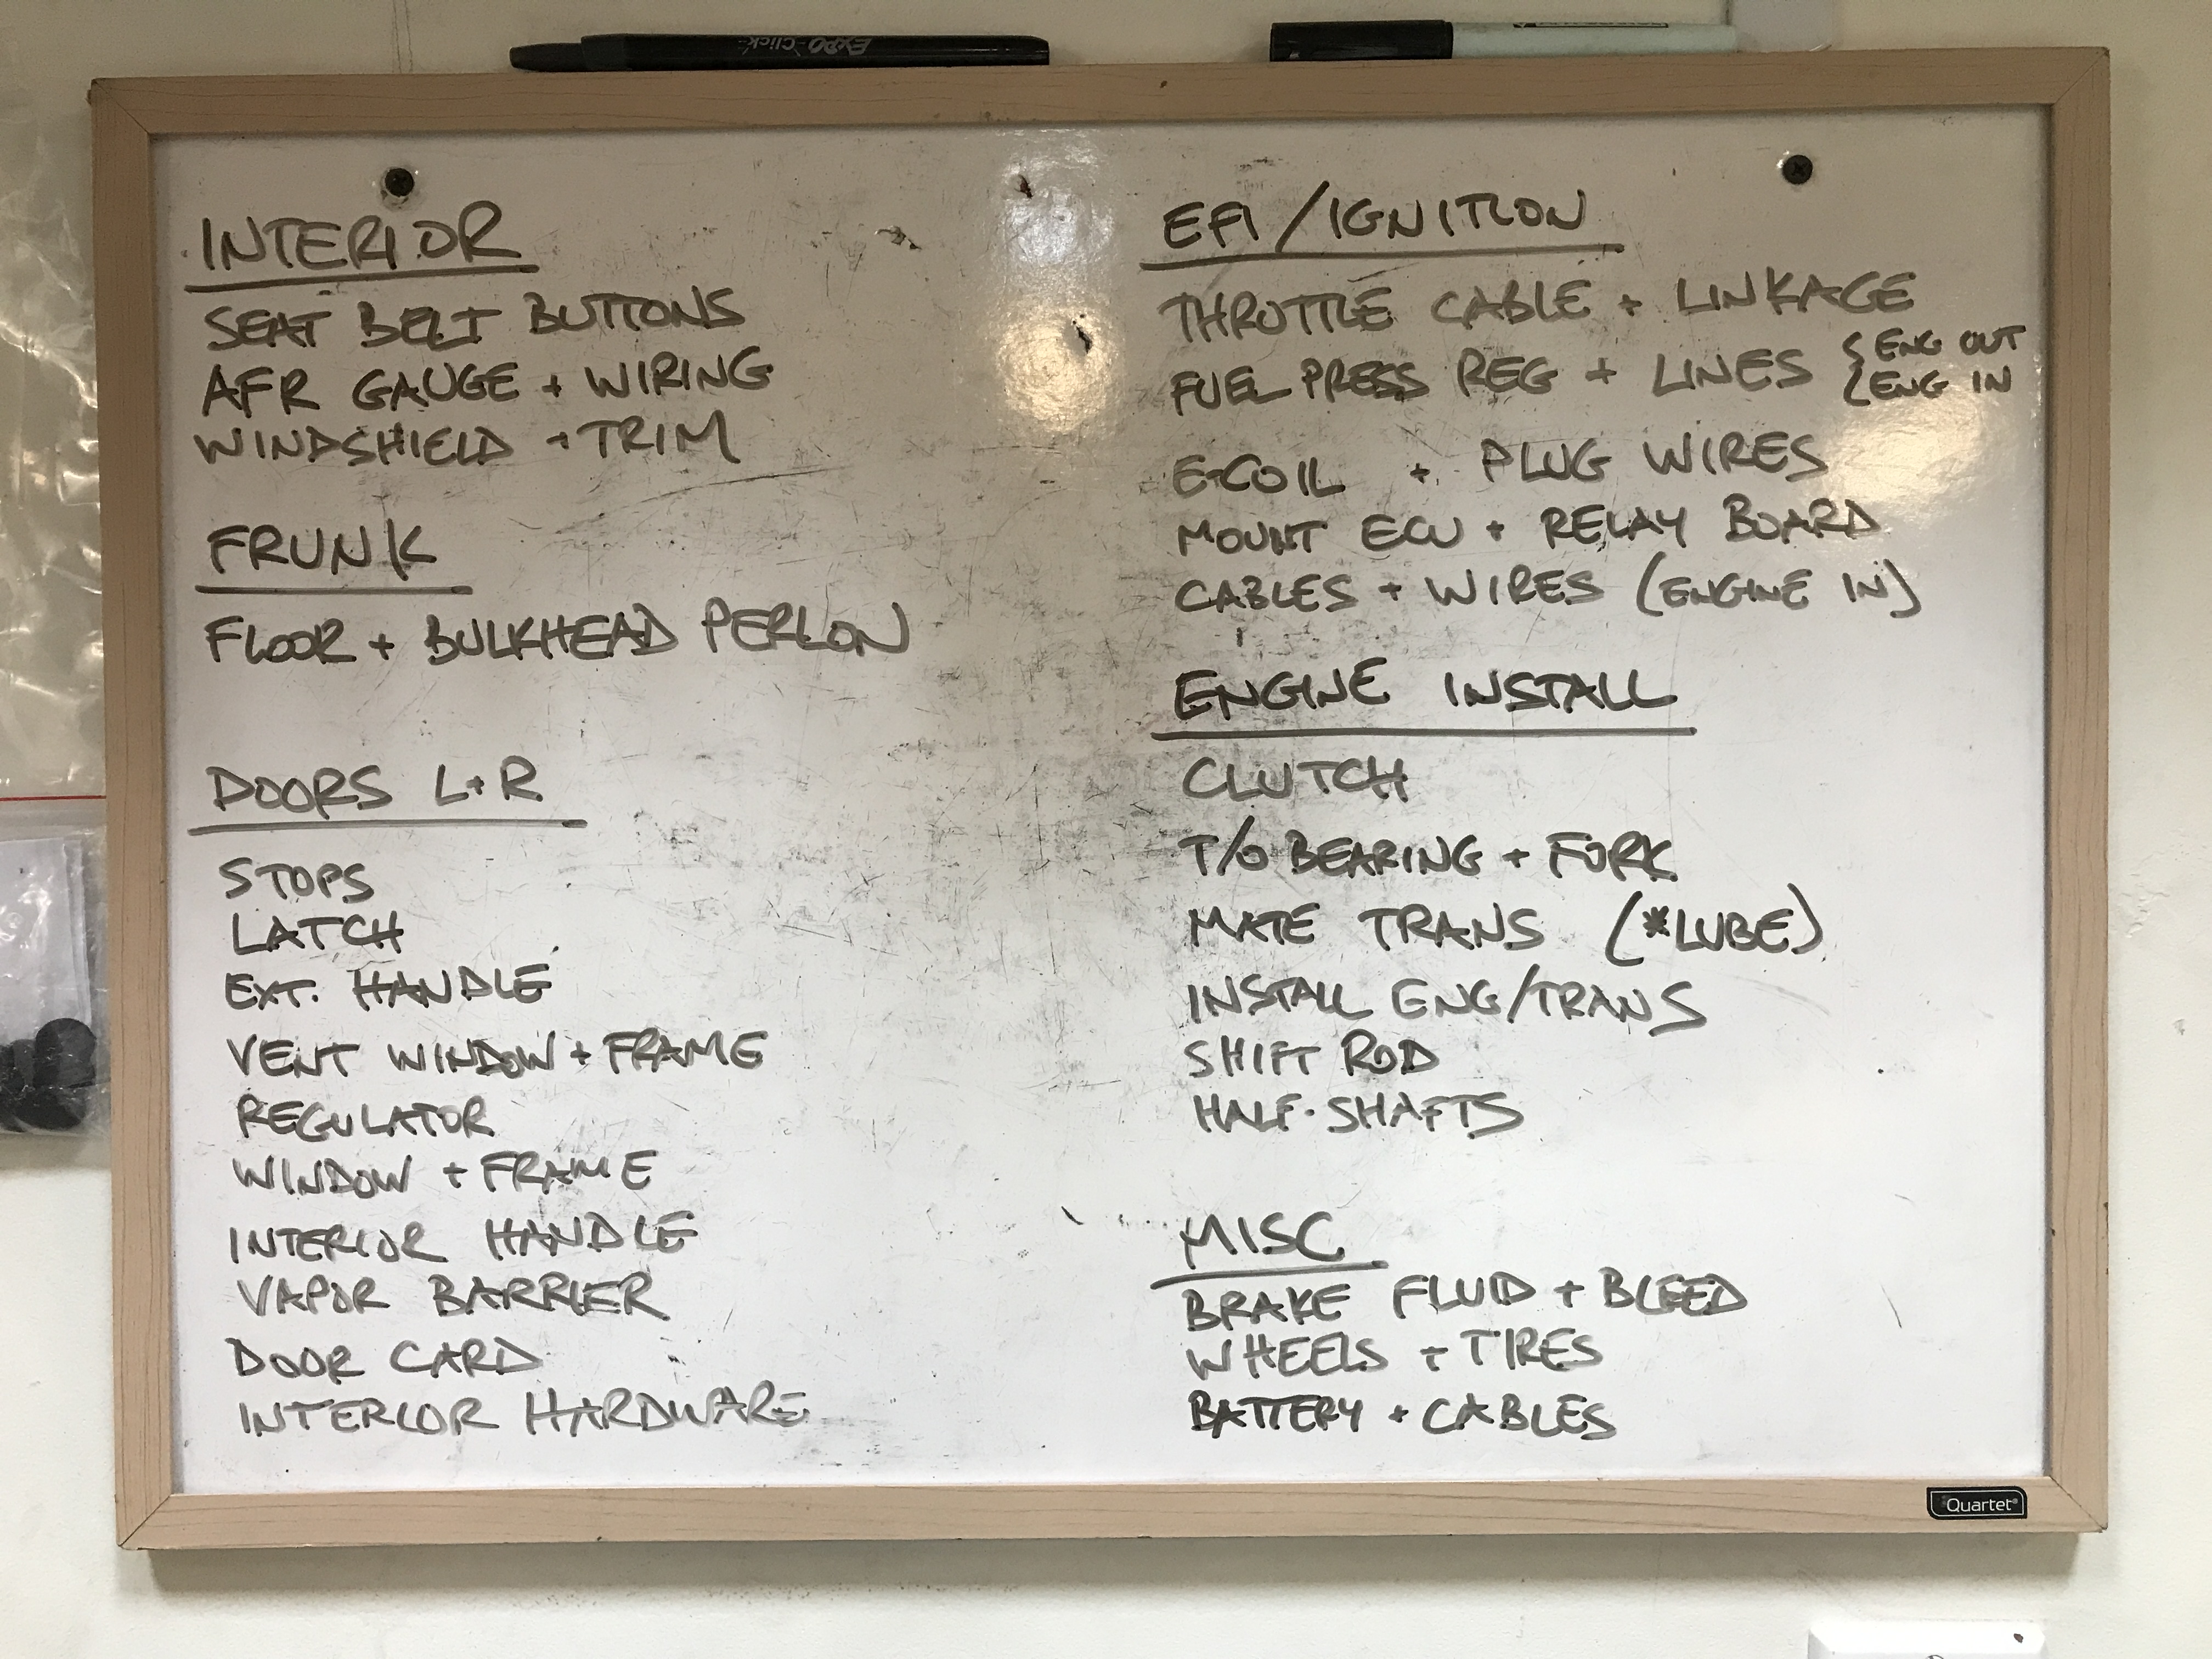 Expo Click
INTERIOR
SEAT BELT BUTTONS
AFR GAUGE + WIRING
WINDSHIELD + TRIM
FRUNK
FLOOR + BULKHEAD PERLON
DOORS L+R
STOPS
LATCH
EXT. HANDLE
VENT WINDOW + FRAME
REGULATOR
WINDOW + FRAME
INTERIOR HANDLE
VAPOR BARRIER
DOOR CARD
INTERIOR HARDWARE
EFI/IGNITION
THROTTLE CABLE + LINKAGE
FUEL PRESS REG + LINES { ENG OUT
{ ENG IN
E-COIL + PLUG WIRES
MOUNT ECU + RELAY BOARD
CABLES + WIRES (ENGINE IN)
ENGINE INSTALL
CLUTCH
T/O BEARING + FORK
MATE TRANS (*LUBE)
INSTALL ENG/TRANS
SHIFT ROD
HALF-SHAFTS
MISC
BRAKE FLUID + BLEED
WHEELS + TIRES
BATTERY + CABLES
Quartet®